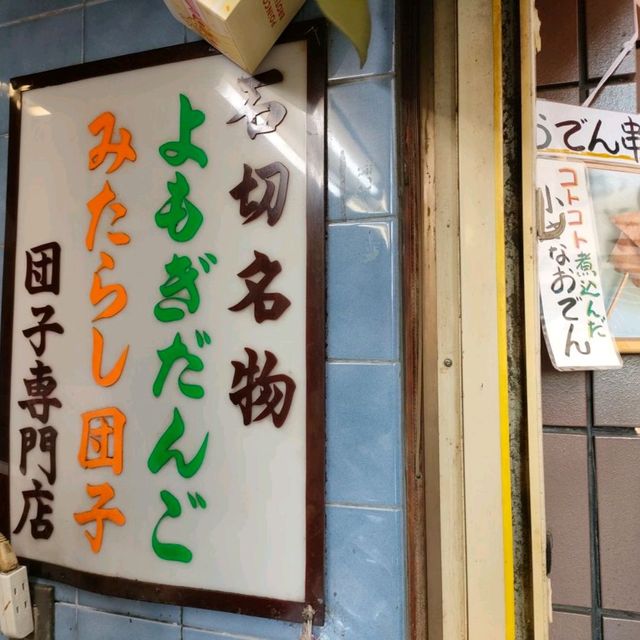 石切名物
よもぎだんご
みたらし団子
団子専門店
うでん串
コトコト煮込んだ
なおでん